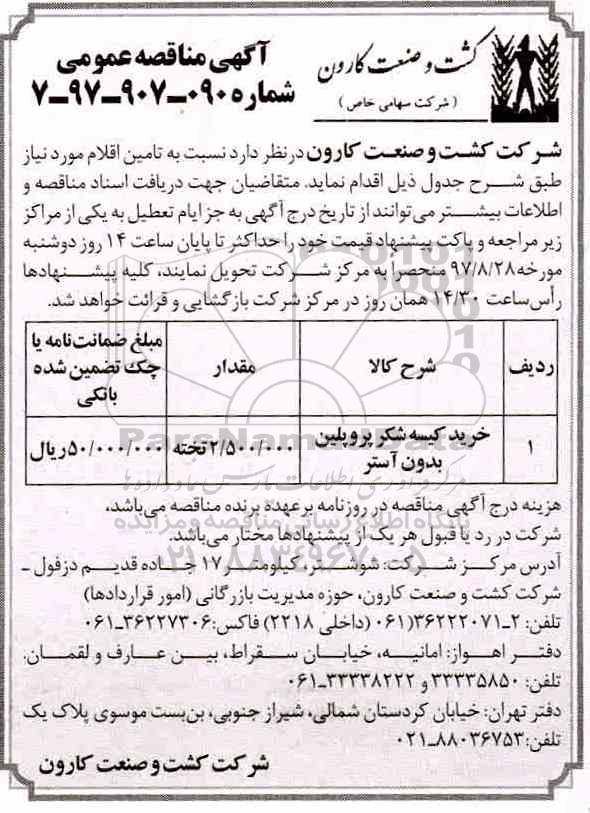 کشت و صنعت کارون
(شرکت سهامی خاص)
آگهی مناقصه عمومی
شماره ۰۹۰-۹۰۷-۹۷-۷
شرکت کشت و صنعت کارون در نظر دارد نسبت به تامین اقلام مورد نیاز
طبق شرح جدول ذیل اقدام نماید. متقاضیان جهت دریافت اسناد مناقصه و
اطلاعات بیشتر می‌توانند از تاریخ درج آگهی به جز ایام تعطیل به یکی از مراکز
زیر مراجعه و پاکت پیشنهاد قیمت خود را حداکثر تا پایان ساعت ۱۴ روز دوشنبه
مورخه ۹۷/۸/۲۸ منحصراً به مرکز شرکت تحویل نمایند، کلیه پیشنهادها
رأس ساعت ۱۴/۳۰ همان روز در مرکز شرکت بازگشایی و قرائت خواهد شد.
ردیف شرح کالا مقدار مبلغ ضمانت‌نامه یا چک تضمین شده بانکی
۱ خرید کیسه شکر پروپلین بدون آستر ۲/۵۰۰/۰۰۰ تخته ۵۰/۰۰۰/۰۰۰ ریال
هزینه درج آگهی مناقصه در روزنامه بر عهده برنده مناقصه می‌باشد،
شرکت در رد یا قبول هر یک از پیشنهادها مختار می‌باشد.
آدرس مرکز شرکت: شوشتر، کیلومتر ۱۷ جاده قدیم دزفول -
شرکت کشت و صنعت کارون، حوزه مدیریت بازرگانی (امور قراردادها)
تلفن: ۲-۳۶۲۲۲۰۷۱(۰۶۱) (داخلی ۲۲۱۸) فاکس: ۳۶۲۲۷۳۰۶-۰۶۱
دفتر اهواز: امانیه، خیابان سقراط، بین عارف و لقمان.
تلفن: ۳۳۳۳۵۸۵۰ و ۳۳۳۳۸۲۲۲-۰۶۱
دفتر تهران: خیابان کردستان شمالی، شیراز جنوبی، بن‌بست موسوی پلاک یک
تلفن: ۸۸۰۳۶۷۵۳-۰۲۱
شرکت کشت و صنعت کارون
ParsNamadData
پایگاه اطلاع رسانی مناقصه و مزایده